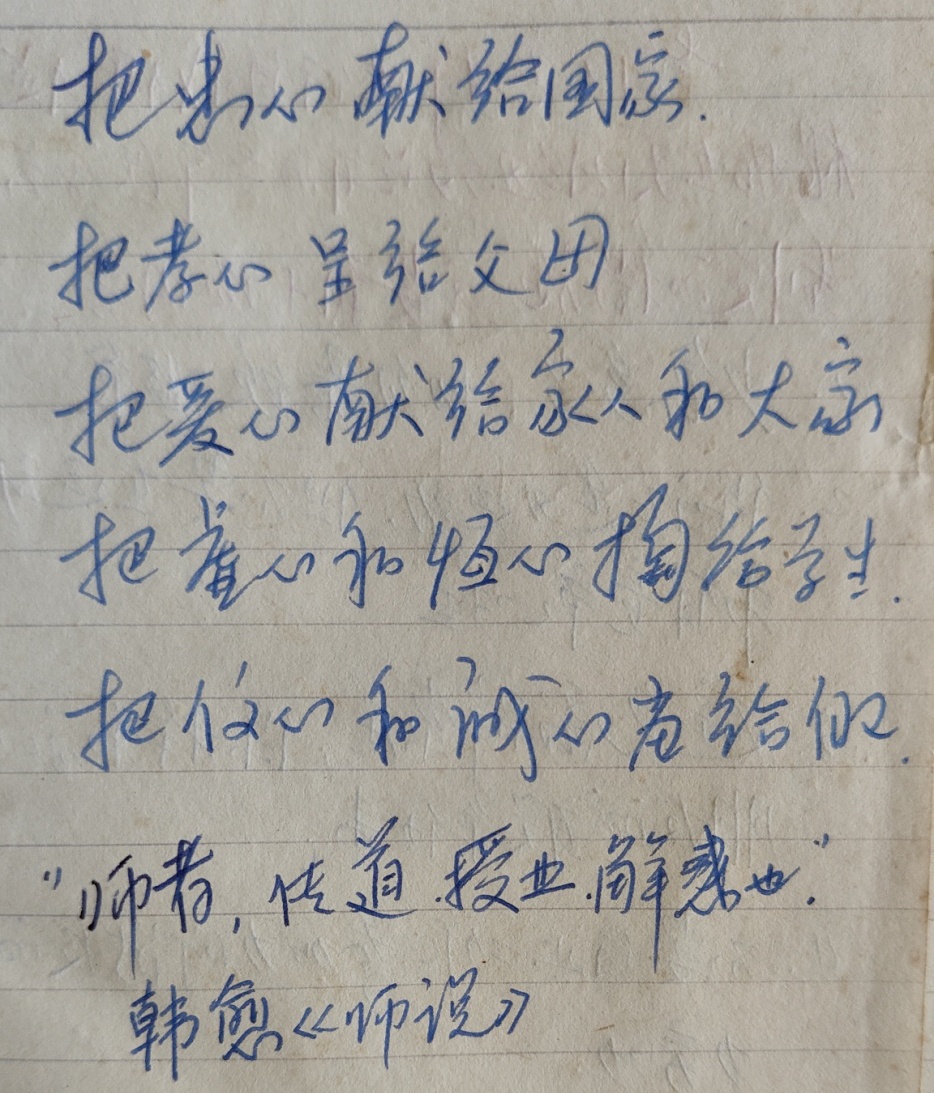 把心献给国家.
把孝心呈给父母
把爱心献给家人和大家
把心和恒心掏给学生.
把心和诚心给.
"师者,传道.授业.解惑也".
韩愈《师说》